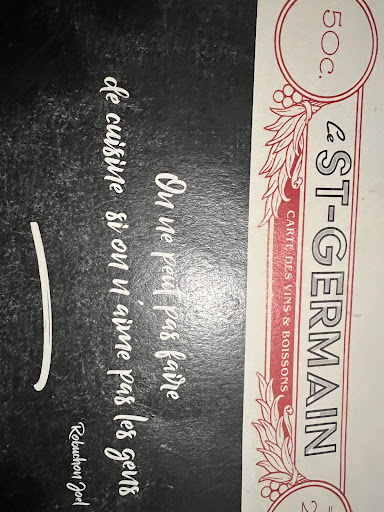 50c.
Le ST-GERMAIN
CARTE DES VINS & BOISSONS
2
On ne peut pas faire
de cuisine si on n'aime pas les gens
Robuchon Joel